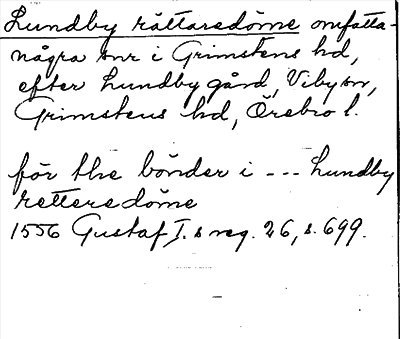 Lundby rättaredöme omfatta-
några snr i Grimstens hd,
efter Lundby gård, Viby sn,
Grimstens hd, Örebro l.
för the bönder i --- Lundby
retteredöme
1556 Gustaf I.s reg. 26, s. 699.